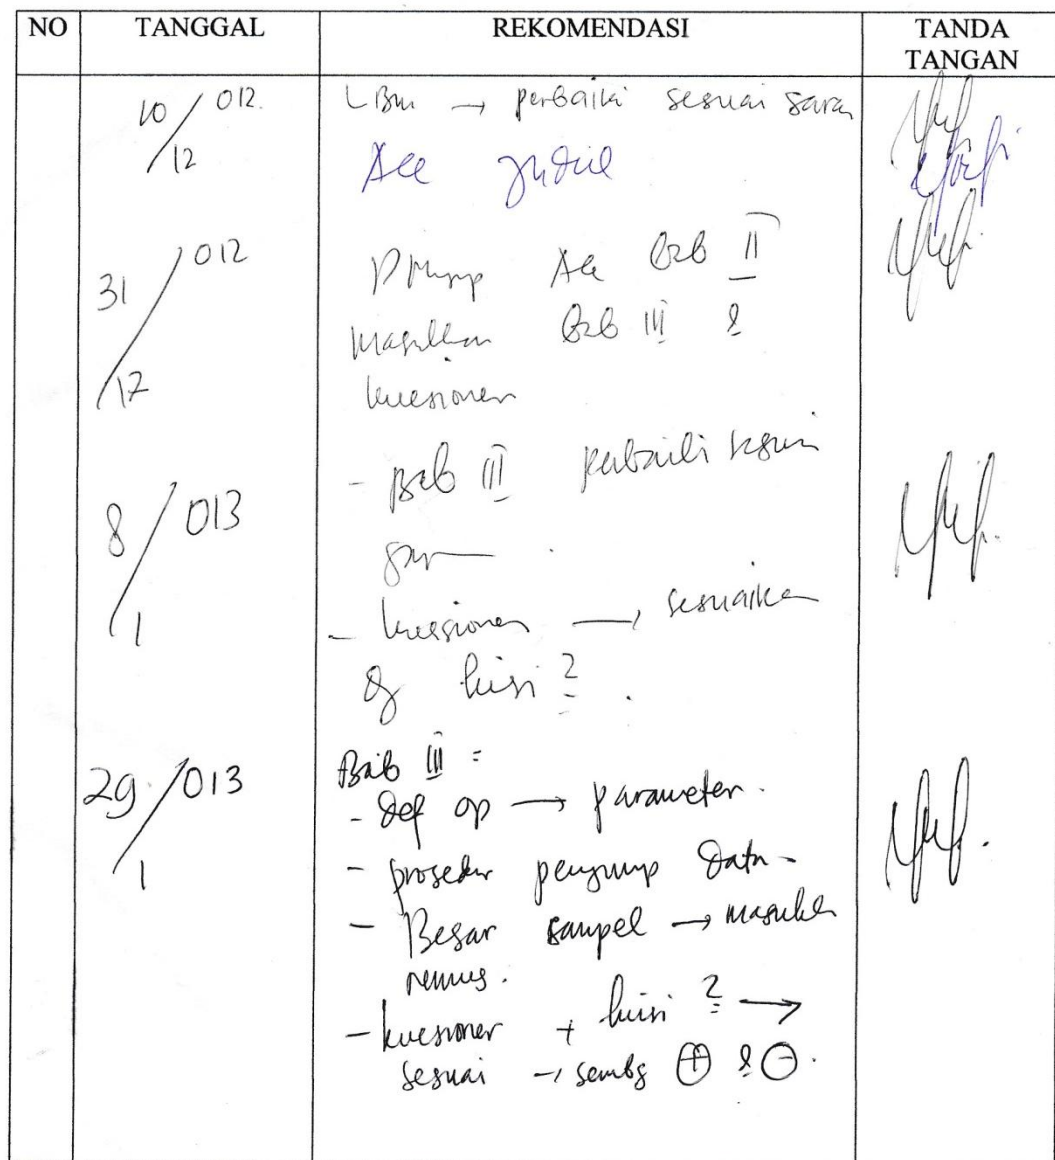 NO TANGGAL REKOMENDASI TANDA TANGAN
10/12 012. LBM → perbaiki sesuai saran
Acc judul
31/12 012 Acc Bab II
masukkan Bab III &
kuesioner
8/1 013 - Bab III perbaiki sesuai
saran.
- kuesioner → sesuaikan
dg kisi2.
29/1 013 Bab III :
- Def op → parameter.
- prosedur pengump data -
- Besar sampel → masukkan
rumus.
- kuesioner + kisi2 →
sesuai → sembg ⊕ & ⊖.